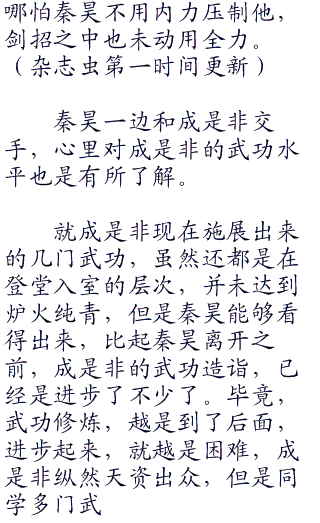 哪怕秦昊不用内力压制他，
剑招之中也未动用全力。
（杂志虫第一时间更新）
秦昊一边和成是非交
手，心里对成是非的武功水
平也是有所了解。
就成是非现在施展出来
的几门武功，虽然还都是在
登堂入室的层次，并未达到
炉火纯青，但是秦昊能够看
得出来，比起秦昊离开之
前，成是非的武功造诣，已
经是进步了不少了。毕竟，
武功修炼，越是到了后面，
进步起来，就越是困难，成
是非纵然天资出众，但是同
学多门武